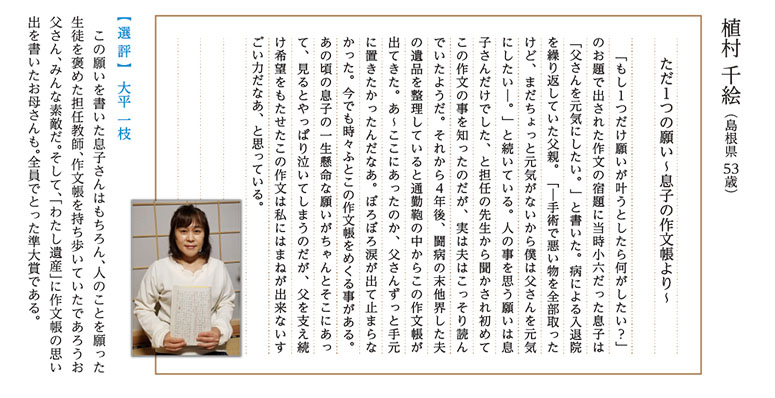 植村 千絵（島根県 53歳）
ただ１つの願い～息子の作文帳より～
「もし１つだけ願いが叶うとしたら何がしたい？」
のお題で出された作文の宿題に当時小六だった息子は
「父さんを元気にしたい。」と書いた。病による入退院
を繰り返していた父親。「―手術で悪い物を全部取った
けど、まだちょっと元気がないから僕は父さんを元気
にしたい―。」と続いている。人の事を思う願いは息
子さんだけでした、と担任の先生から聞かされ初めて
この作文の事を知ったのだが、実は夫はこっそり読ん
でいたようだ。それから４年後、闘病の末他界した夫
の遺品を整理していると通勤鞄の中からこの作文帳が
出てきた。あ～ここにあったのか、父さんずっと手元
に置きたかったんだなあ。ぽろぽろ涙が出て止まらな
かった。今でも時々ふとこの作文帳をめくる事がある。
あの頃の息子の一生懸命な願いがちゃんとそこにあっ
て、見るとやっぱり泣いてしまうのだが、父を支え続
け希望をもたせたこの作文は私にはまねが出来ないす
ごい力だなあ、と思っている。
【選評】 大平 一枝
この願いを書いた息子さんはもちろん、人のことを願った
生徒を褒めた担任教師、作文帳を持ち歩いていたであろうお
父さん、みんな素敵だ。そして、「わたし遺産」に作文帳の思い
出を書いたお母さんも。全員でとった準大賞である。